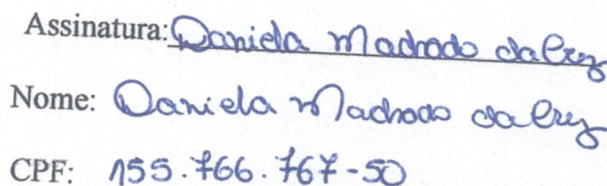 Assinatura: Daniela Machado da Cruz
Nome: Daniela Machado da Cruz
CPF: 155.766.767-50